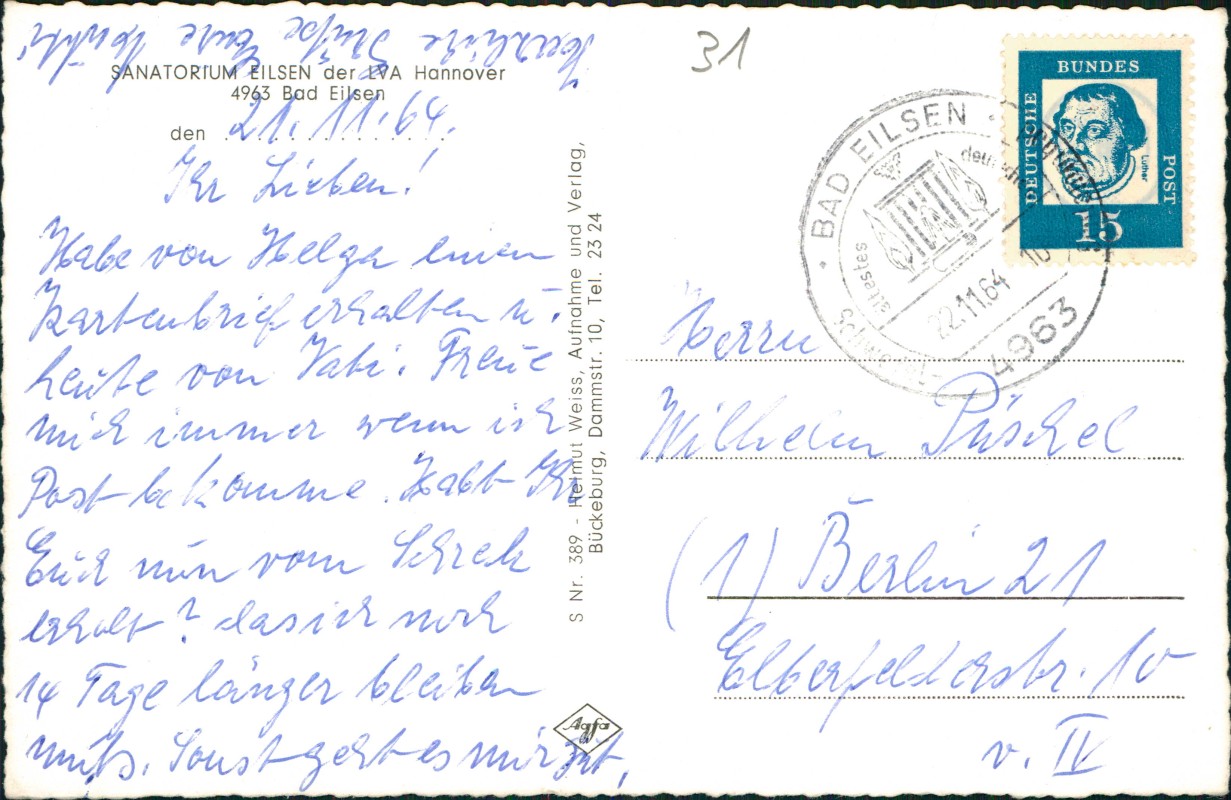 SANATORIUM EILSEN der LVA Hannover
4963 Bad Eilsen
den 21.11.64.
Ihr Lieben!
Habe von Helga einen
Kartenbrief erhalten u.
heute von Vati. Freue
mich immer wenn ich
Post bekomme. Habt Ihr
Euch nun vom Schreck
erholt? das ich noch
14 Tage länger bleiben
muß. Sonst geht es mir gut.
Herzliche Grüße Eure
S Nr. 389 - Helmut Weiss, Aufnahme und Verlag,
Bückeburg, Dammstr. 10, Tel. 23 24
Agfa
31
BAD EILSEN
deutsch
ältestes
Schlamm
22.11.64
4963
DEUTSCHE
BUNDES
POST
Luther
15
Herrn
Wilhelm Püschel
(1) Berlin 21
Elberfelderstr. 10
v. IV